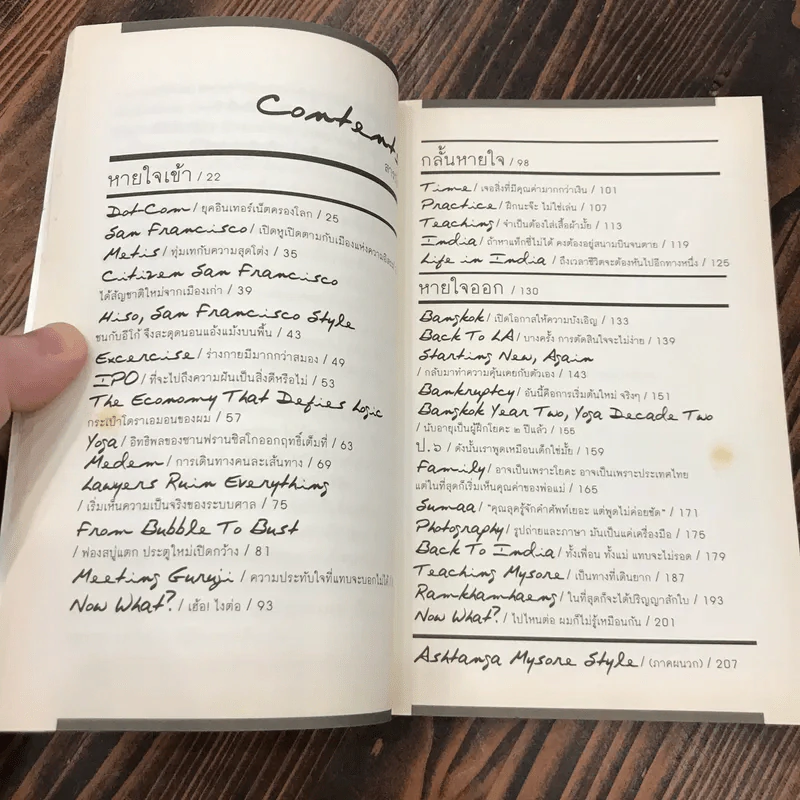 Contents
หายใจเข้า / 22
Dot-Com / ยุคอินเทอร์เน็ตครองโลก / 25
San Francisco / เปิดหูเปิดตามกับเมืองแห่งความ
Metis / ทุ่มเทกับความสุดโต่ง / 35
Citizen San Francisco
ได้สัญชาติใหม่จากเมืองเก่า / 39
Hiso, San Francisco Style
ชนกับอีโก้ จึงสะดุดนอนแอ้งแม้งบนพื้น / 43
Excercise / ร่างกายมีมากกว่าสมอง / 49
IPO / ที่จะไปถึงความฝันเป็นสิ่งดีหรือไม่ / 53
The Economy That Defies Logic
กระเป๋าโดราเอมอนของผม / 57
Yoga / อิทธิพลของซานฟรานซิสโกออกฤทธิ์เต็มที่ / 63
Medem / การเดินทางคนละเส้นทาง / 69
Lawyers Ruin Everything
/ เริ่มเห็นความเป็นจริงของระบบศาล / 75
From Bubble To Bust
/ ฟองสบู่แตก ประตูใหม่เปิดกว้าง / 81
Meeting Guruji / ความประทับใจที่แทบจะบอกไม่ได้ /
Now What? / เฮ้อ! ไงต่อ / 93
กลั้นหายใจ / 98
Time / เจอสิ่งที่มีคุณค่ามากกว่าเงิน / 101
Practice / ฝึกนะจ๊ะ ไม่ใช่เล่น / 107
Teaching / จำเป็นต้องใส่เสื้อผ้ามั้ย / 113
India / ถ้าหาแท็กซี่ไม่ได้ คงต้องอยู่สนามบินจนตาย / 119
Life in India / ถึงเวลาชีวิตจะต้องหันไปอีกทางหนึ่ง / 125
หายใจออก / 130
Bangkok / เปิดโอกาสให้ความบังเอิญ / 133
Back To LA / บางครั้ง การตัดสินใจจะไม่ง่าย / 139
Starting New, Again
/ กลับมาทำความคุ้นเคยกับตัวเอง / 143
Bankruptcy / อันนี้คือการเริ่มต้นใหม่ จริงๆ / 151
Bangkok Year Two, Yoga Decade Two
/ นับอายุเป็นผู้ฝึกโยคะ ๒ ปีแล้ว / 155
ป.๖ / ดังนั้นเราพูดเหมือนเด็กใช่มั้ย / 159
Family / อาจเป็นเพราะโยคะ อาจเป็นเพราะประเทศไทย
แต่ในที่สุดก็เริ่มเห็นคุณค่าของพ่อแม่ / 165
Sumaa / "คุณลุครู้จักคำศัพท์เยอะ แต่พูดไม่ค่อยชัด" / 171
Photography / รูปถ่ายและภาษา มันเป็นแค่เครื่องมือ / 175
Back To India / ทั้งเพื่อน ทั้งแม่ แทบจะไม่รอด / 179
Teaching Mysore / เป็นทางที่เดินยาก / 187
Ramkhamhaeng / ในที่สุดก็จะได้ปริญญาสักใบ / 193
Now What? / ไปไหนต่อ ผมก็ไม่รู้เหมือนกัน / 201
Ashtanga Mysore Style / (ภาคผนวก) / 207